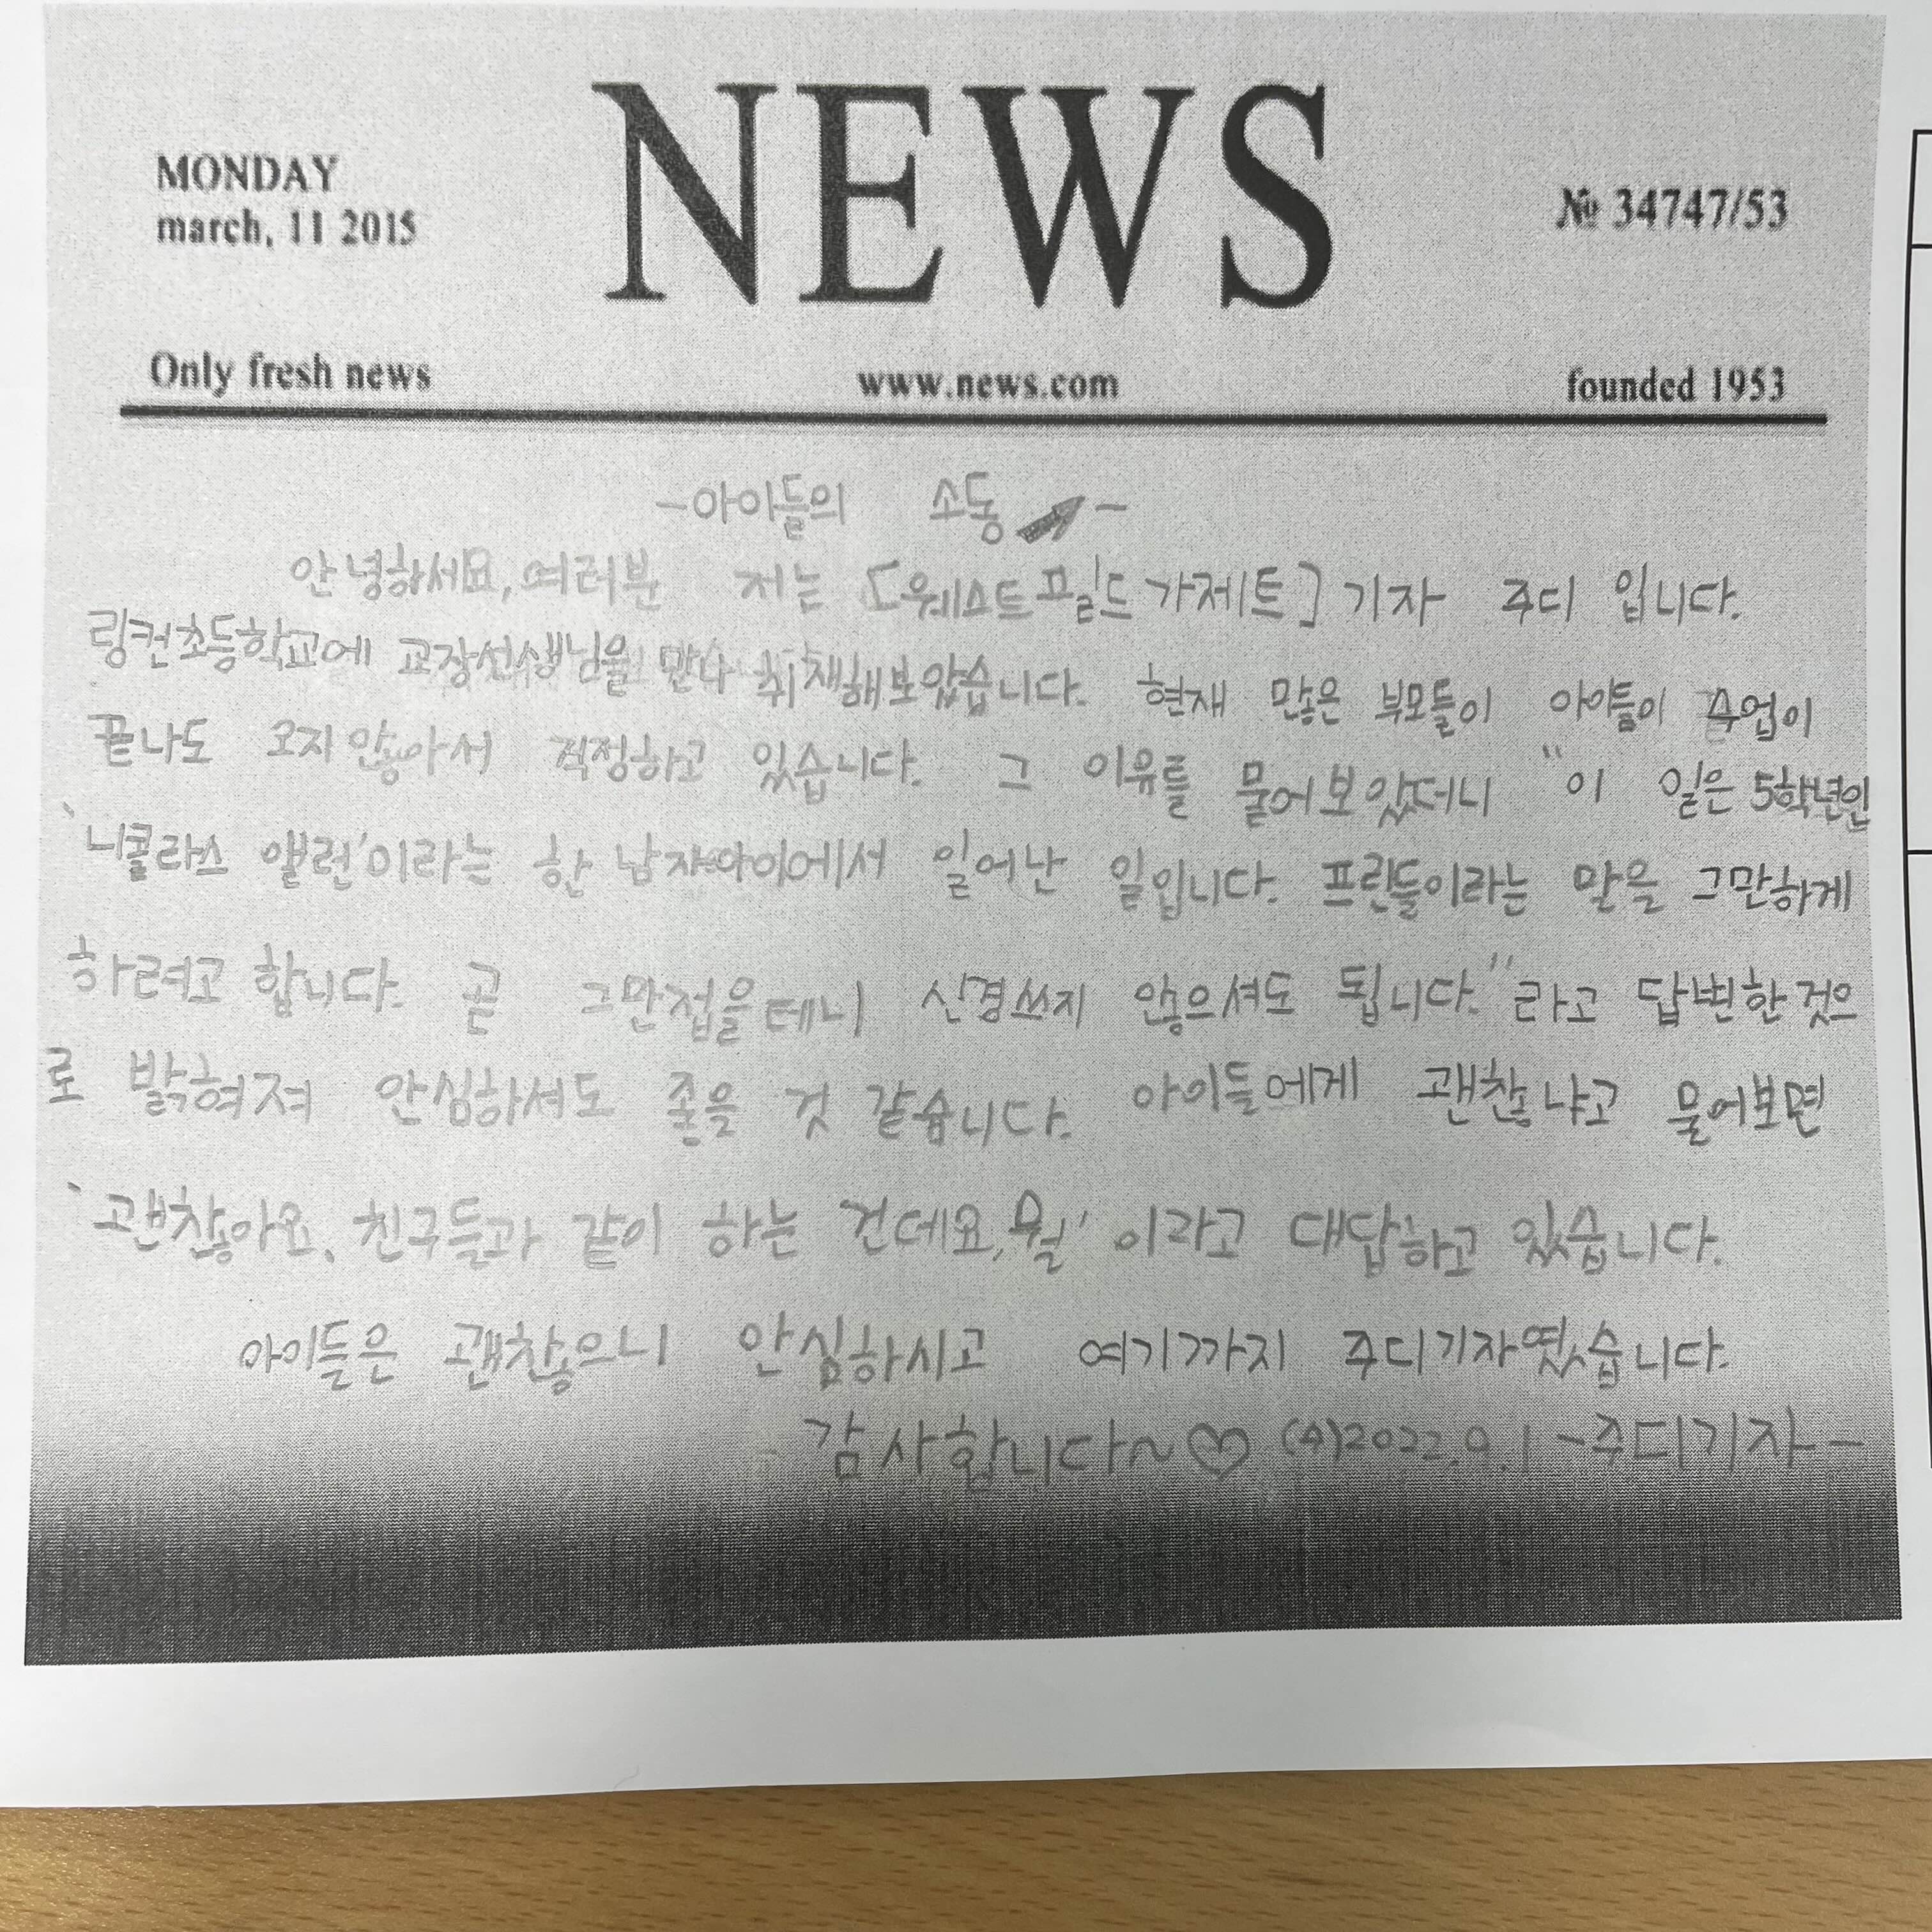 NEWS
MONDAY
march, 11 2015
№ 34747/53
Only fresh news www.news.com founded 1953
-아이들의 소동-
안녕하세요, 여러분 저는 [웨스트필드가제트] 기자 주디 입니다.
링컨초등학교에 교장선생님을 만나 취재해보았습니다. 현재 많은 부모들이 아이들이 수업이
끝나도 오지 않아서 걱정하고 있습니다. 그 이유를 물어보았더니 "이 일은 5학년인
'니콜라스 앨런'이라는 한 남자아이에서 일어난 일입니다. 프린들이라는 말을 그만하게
하려고 합니다. 곧 그만접을테니 신경쓰지 않으셔도 됩니다."라고 답변한것으
로 밝혀져 안심하셔도 좋을 것 같습니다. 아이들에게 괜찮냐고 물어보면
'괜찮아요, 친구들과 같이 하는 건데요, 뭘' 이라고 대답하고 있습니다.
아이들은 괜찮으니 안심하시고 여기까지 주디기자였습니다.
감사합니다~♡ 2022.9.1 -주디기자-